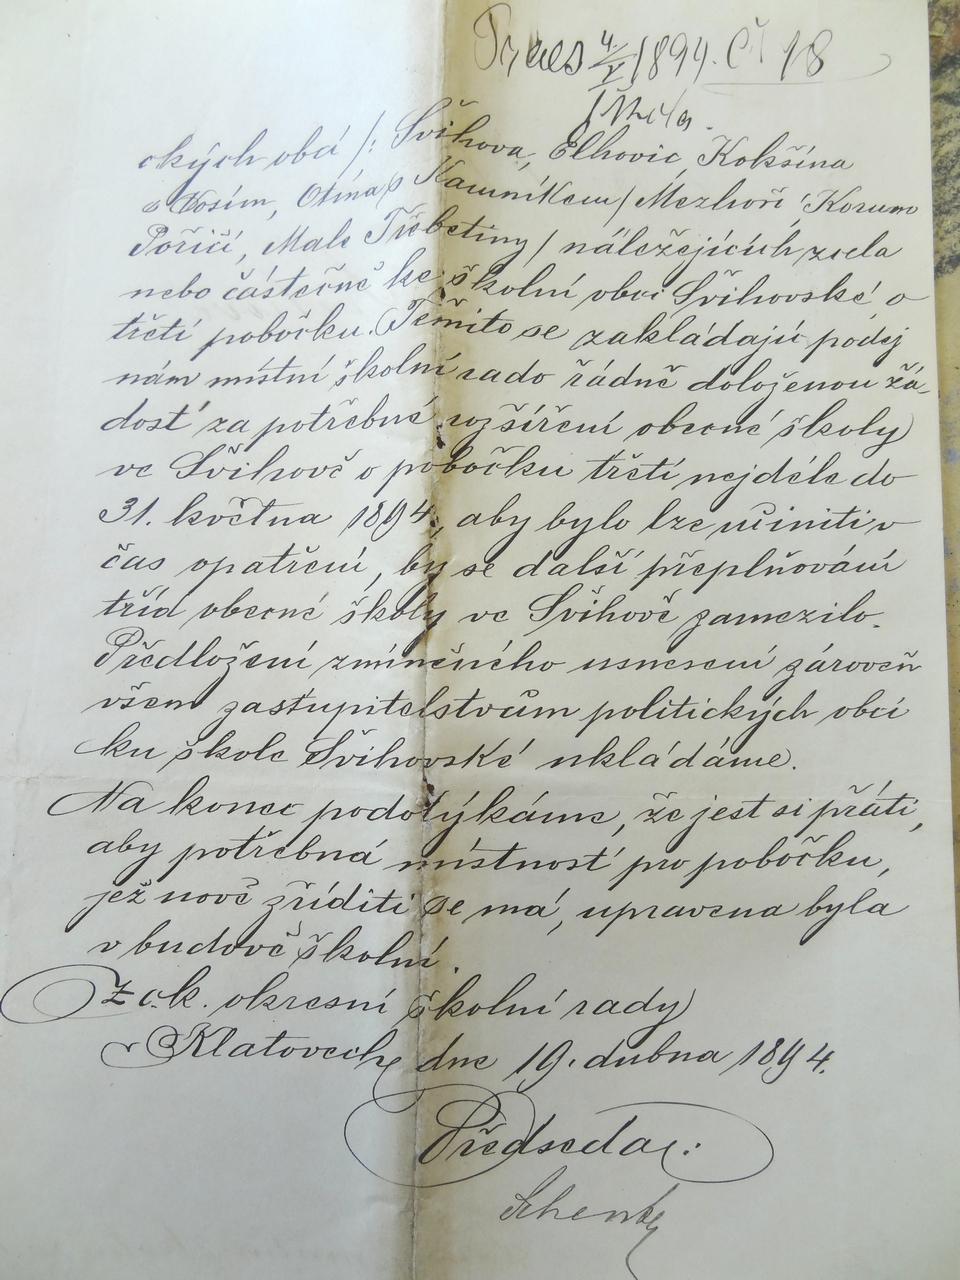 Praes 4/V 1894. Čí 18
ckých obcí /: Švihova, Elhovic, Kokšína
s Vosím, Otína s Kamníkem / Mezhoří, Korun
Poříčí, Malé Třebetiny / náležejících zcela
nebo částečně ke školní obci Švihovské o
třetí pobočku. Těmito se zakládají podej
nám místní školní rado řádně doloženou žá-
dosť za potřebné rozšíření obecné školy
ve Švihově o pobočku třetí, nejdéle do
31. května 1894, aby bylo lze učiniti v
čas opatření, by se další přeplňování
tříd obecné školy ve Švihově zamezilo.
Předložení zmíněného usnesení zároveň
všem zastupitelstvům politických obcí
ku škole Švihovské ukládáme.
Na konec podotýkáme, že jest si přáti,
aby potřebná místnosť pro pobočku,
jež nově zříditi se má, upravena byla
v budově školní.
Z c.k. okresní školní rady
v Klatovech dne 19. dubna 1894.
Předseda: